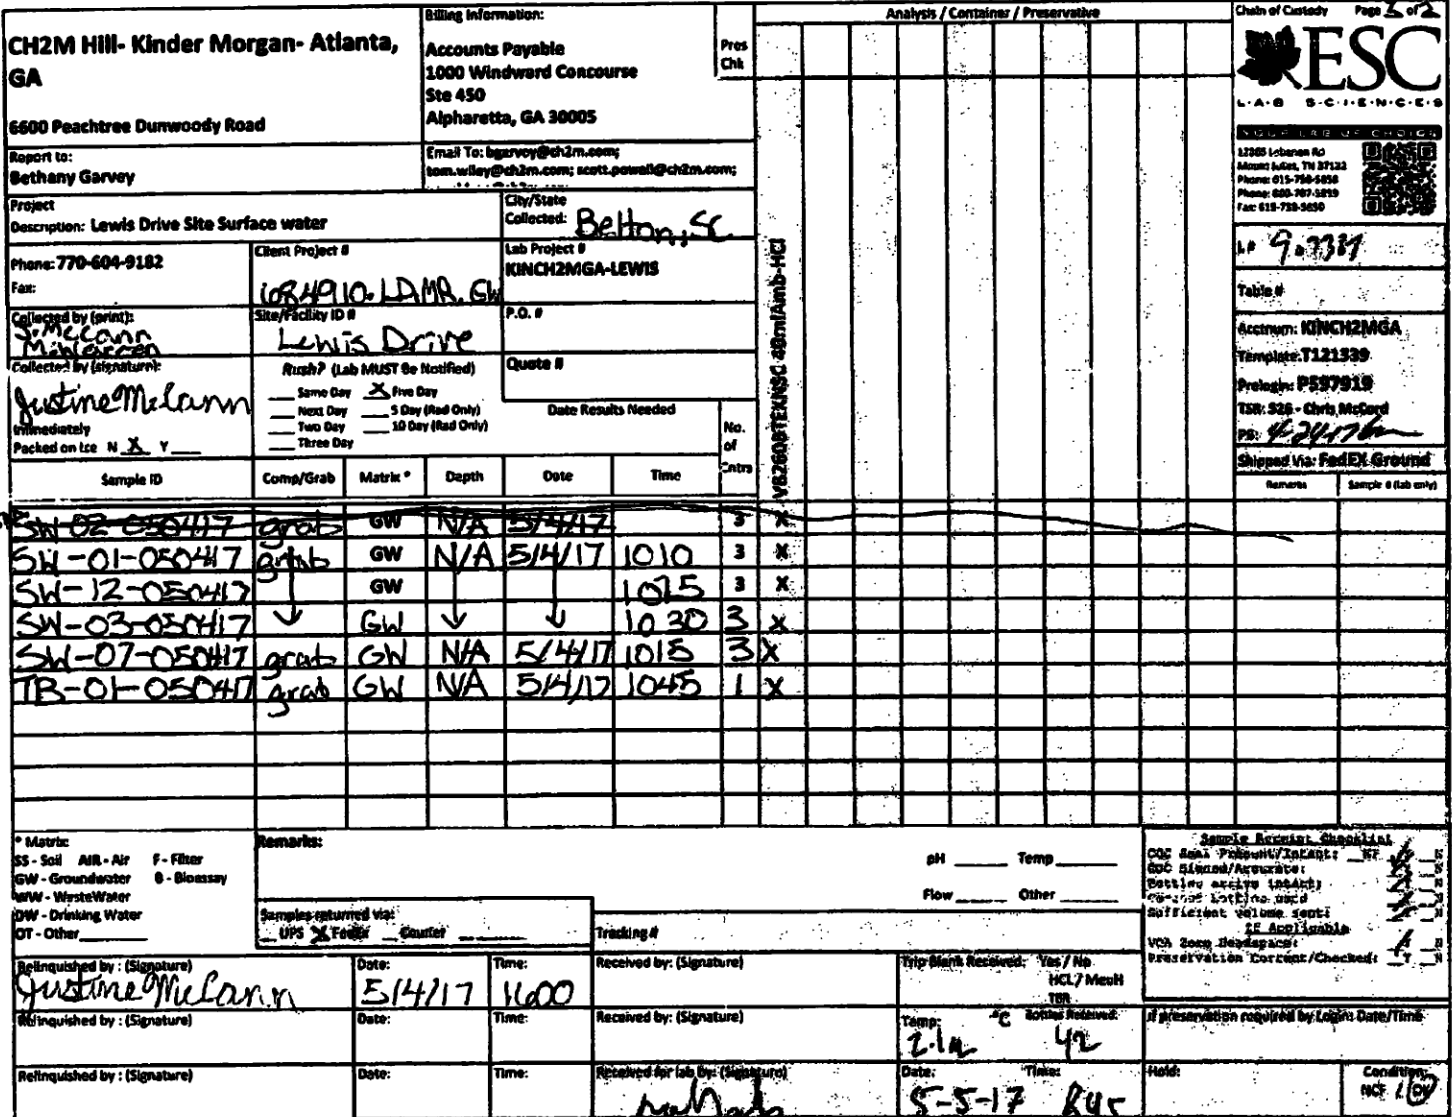 CH2M Hill- Kinder Morgan- Atlanta,
GA
6600 Peachtree Dunwoody Road
Billing Information:
Accounts Payable
1000 Windward Concourse
Ste 450
Alpharetta, GA 30005
Pres
Chk
Analysis / Container / Preservative
Chain of Custody Page of 2
ESC
L·A·B S·C·I·E·N·C·E·S
YOUR LAB OF CHOICE
12065 Lebanon Rd
Mount Juliet, TN 37122
Phone: 615-758-5858
Phone: 800-767-5859
Fax: 615-758-5859
Report to:
Bethany Garvey
Email To: bgarvey@ch2m.com;
tom.wiley@ch2m.com; scott.powell@ch2m.com;
Project
Description: Lewis Drive Site Surface water
City/State
Collected: Belton, SC
Phone: 770-604-9182
Fax:
Client Project #
Lab Project #
KINCH2MGA-LEWIS
L#
Table #
Collected by (print):
J. McCann
M. Warren
Site/Facility ID #
Lewis Drive
P.O. #
Acctnum: KINCH2MGA
Template: T121339
Prelogin: P597919
TSR: 526 - Chris McCord
PB: 4-24-17
Shipped Via: FedEX Ground
Collected by (signature):
Justine McCann
Rush? (Lab MUST Be Notified)
Same Day X Five Day
Next Day 5 Day (Rad Only)
Two Day 10 Day (Rad Only)
Three Day
Quote #
Date Results Needed
Immediately
Packed on Ice N X Y
No.
of
Cntrs
V8260BTEXNSC 40mlAmb-HCl
Sample ID Comp/Grab Matrix * Depth Date Time Remarks Sample # (lab only)
SW-02-050417 grab GW N/A 5/4/17 3 X
SW-01-050417 grab GW N/A 5/4/17 1010 3 X
SW-12-050417 GW 1025 3 X
SW-03-050417 GW 1030 3 X
SW-07-050417 grab GW N/A 5/4/17 1015 3 X
TB-01-050417 grab GW N/A 5/4/17 1045 1 X
* Matrix:
SS - Soil AIR - Air F - Filter
GW - Groundwater B - Bioassay
WW - WasteWater
DW - Drinking Water
OT - Other
Remarks:
pH Temp
Flow Other
Samples returned via:
UPS X FedEx Courier
Tracking #
Sample Receipt Checklist
COC Seal Present/Intact: NP Y N
COC Signed/Accurate: Y N
Bottles arrive intact: Y N
Correct bottles used: Y N
Sufficient volume sent: Y N
If Applicable
VOA Zero Headspace: Y N
Preservation Correct/Checked: Y N
Relinquished by : (Signature)
Justine McCann
Date:
5/4/17
Time:
1600
Received by: (Signature)
Trip Blank Received: Yes / No
HCL / MeoH
TBR
Relinquished by : (Signature)
Date:
Time:
Received by: (Signature)
Temp: °C Bottles Received:
42
If preservation required by Login: Date/Time
Relinquished by : (Signature)
Date:
Time:
Received for lab by: (Signature)
Date:
5-5-17
Time:
845
Hold:
Condition:
NCF / OK